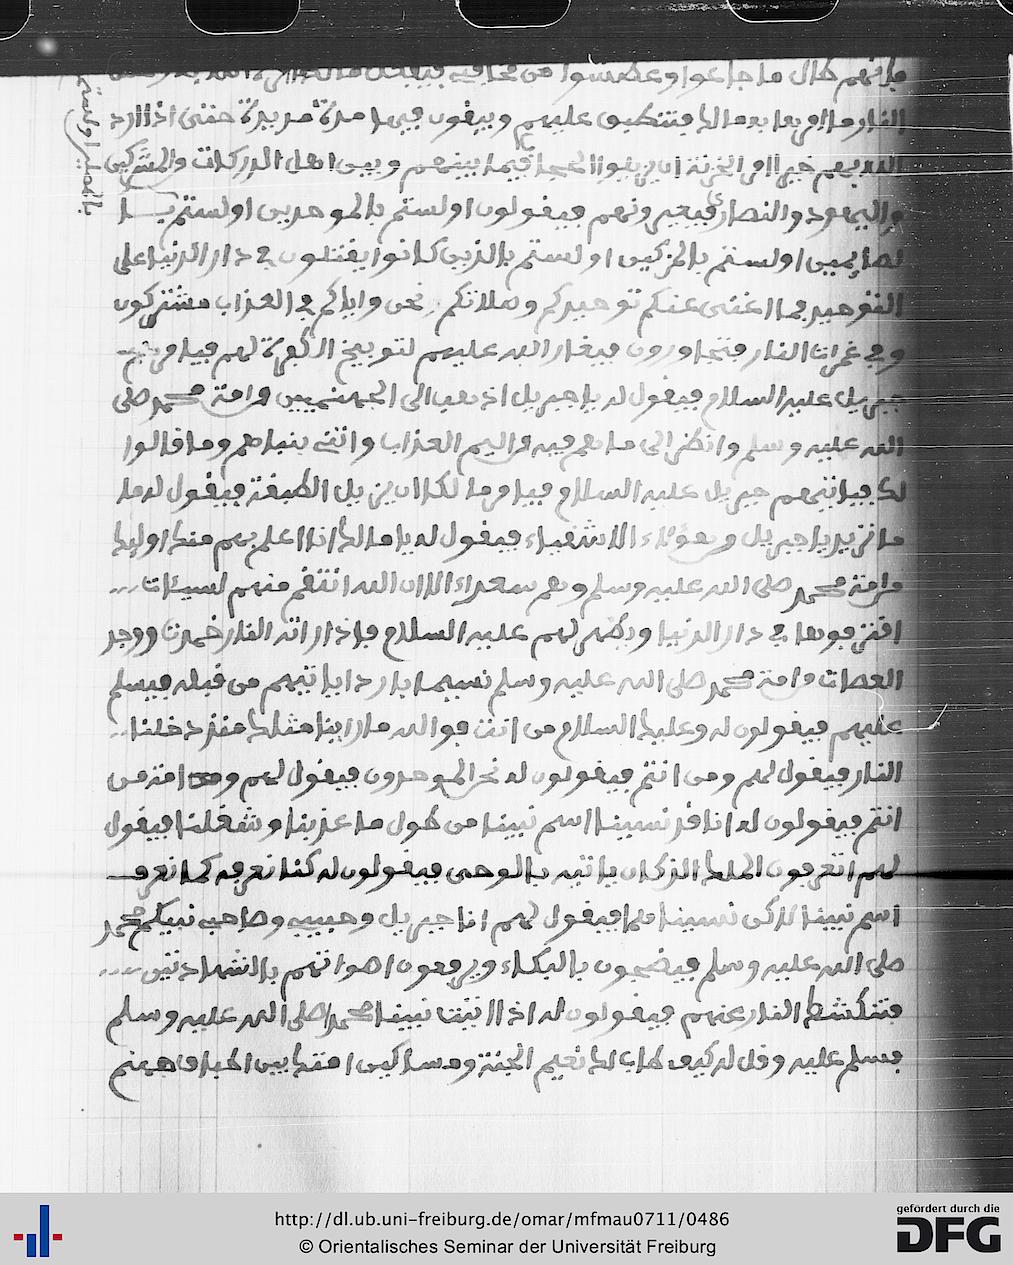 ما فيهم طال ما جاعوا وعطشوا من مخافته فيفعل مالك
النار ما امر بعا بعد مالك فتنطبق عليهم ويبقون فيها مدة مديدة حتى اذا اراد
الله بهم خيرا امر الخزنة ان يزيلوا الحجاب فيما بينهم وبين اهل الدركات والمشركين
واليهود والنصارى فيعيرونهم فيقولون اولستم بالموحدين اولستم با
لصايمين اولستم بالمزكين اولستم بالذين كانوا يقتلون في دار الدنيا على
التوحيد فما اغنى عنكم توحيدكم وصلاتكم نحن واياكم في العذاب مشتركون
وفي غمرات النار متجاورون فيغار الله عليهم لتوبيخ الكفرة لهم فيامر
جبريل عليه السلام فيقول له يا جبريل اذهب الى الجهنميين من امة محمد صلى
الله عليه وسلم وانظر الى ما هم فيه من اليم العذاب واتني بنباهم وما قالوا
لك فياتيهم جبريل عليه السلام فيامر مالكا ان يزيل الطبقة فيقول له ما
ما تريد يا جبريل وهؤلاء الاشقياء فيقول له يا مالك انا اعلم بهم منك اوليك
من امة محمد صلى الله عليه وسلم وهم سعداء الا ان الله انتقم منهم لسيئات
اقترفوها في دار الدنيا ويظهر لهم عليه السلام فاذا راته النار خمدت ووجد
العصات من امة محمد صلى الله عليه وسلم نسيما باردا ياتيهم من قبله فيسلم
عليهم فيقولون له وعليك السلام من انت فوالله ما راينا مثلك منذ دخلنا
النار فيقول لهم ومن انتم فيقولون له نحن الموحدون فيقول لهم ومن امة من
انتم فيقولون له انا قد نسينا اسم نبينا من طول ما عذبنا وشغلنا فيقول
لهم اتعرفون الملك الذي كان ياتيه بالوحي فيقولون له كنا نعرفه كما نعرف
اسم نبينا لاكن نسيناهما فيقول لهم انا جبريل وحبيبه وصاحب نبيكم محمد
صلى الله عليه وسلم فيضجون بالبكاء ويرفعون اصواتهم بالشهادتين
فتنكشط النار عنهم فيقولون له اذا اتيت نبينا محمدا صلى الله عليه وسلم
فسلم عليه وقل له كيف طاب لك نعيم الجنة ومساكين امتك بين اطباق جهنم
http://dl.ub.uni-freiburg.de/omar/mfmau0711/0486
© Orientalisches Seminar der Universität Freiburg
gefördert durch die
DFG